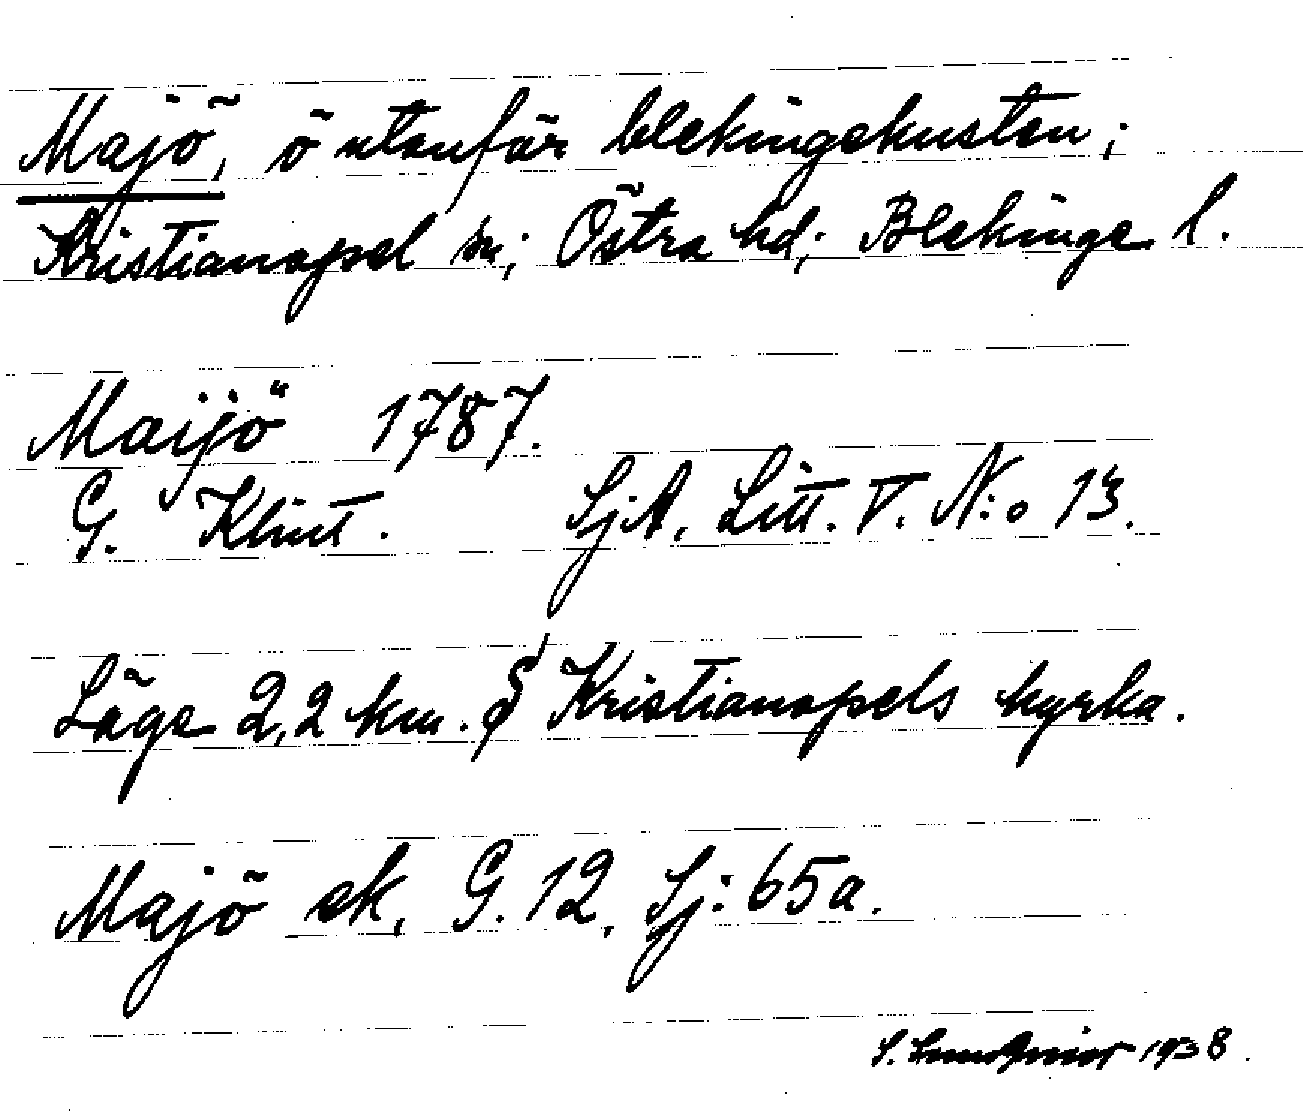 Majö, ö utanför blekingekusten;
Kristianopel sn; Östra hd; Blekinge l.
Maijö 1787.
G. Klint. SjA, Litt. V. N:o 13.
Läge 2,2 km. S Kristianopels kyrka.
Majö ek. G. 12, Sj: 65a.
S. 1938.